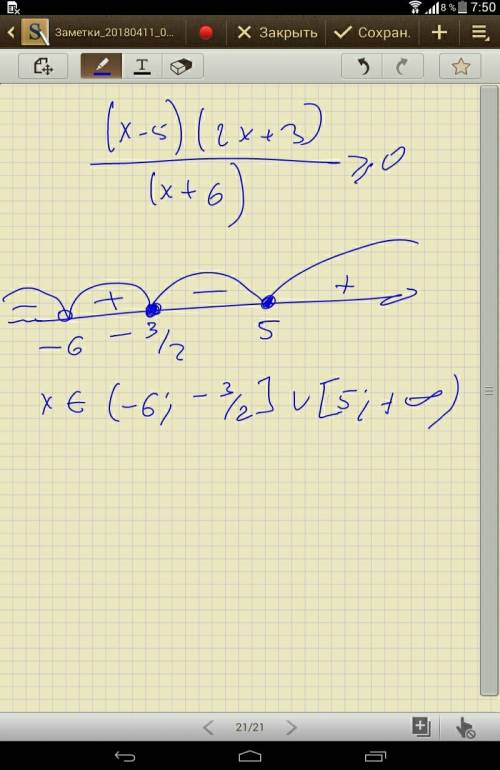 8 % 7:50
Заметки_20180411_0... Закрыть Сохран.
T
(x-5)(2x+3)
(x+6)
≥0
- + - +
-6 -3/2 5
x ∈ (-6; -3/2] ∪ [5; +∞)
21/21